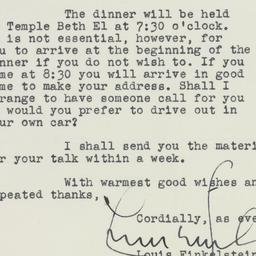 The dinner will be held
Temple Beth El at 7:30 o'clock.
is not essential, however, for
u to arrive at the beginning of the
nner if you do not wish to. If you
me at 8:30 you will arrive in good
me to make your address. Shall I
range to have someone call for you
would you prefer to drive out in
ur own car?
I shall send you the materi
r your talk within a week.
With warmest good wishes an
peated thanks,
Cordially, as eve
Louis Finkelstein